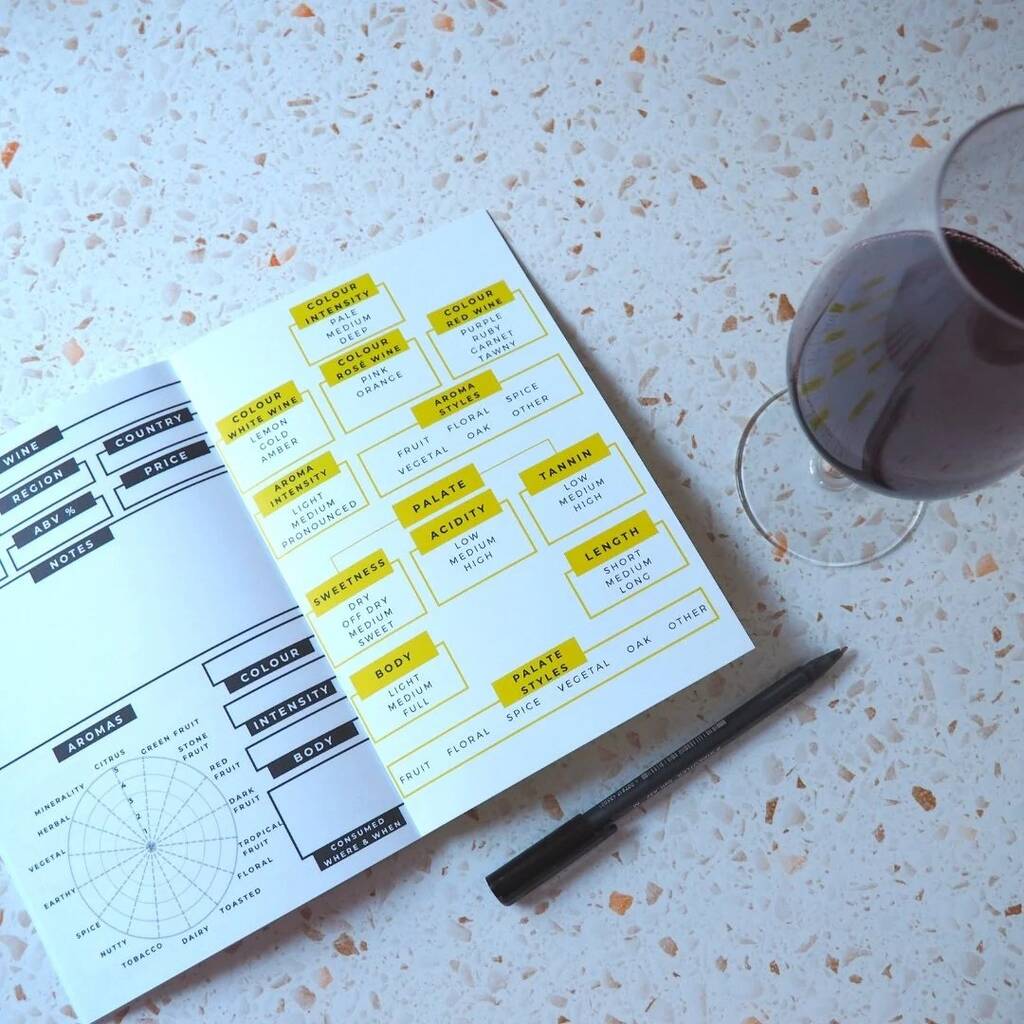 WINE
COUNTRY
REGION
PRICE
ABV %
NOTES
COLOUR
INTENSITY
BODY
CONSUMED
WHERE & WHEN
AROMAS
CITRUS
GREEN FRUIT
STONE
FRUIT
RED
FRUIT
DARK
FRUIT
TROPICAL
FRUIT
FLORAL
TOASTED
DAIRY
TOBACCO
NUTTY
SPICE
EARTHY
VEGETAL
HERBAL
MINERALITY
5
4
3
2
1
COLOUR
INTENSITY
PALE
MEDIUM
DEEP
COLOUR
RED WINE
PURPLE
RUBY
GARNET
TAWNY
COLOUR
ROSÉ WINE
PINK
ORANGE
COLOUR
WHITE WINE
LEMON
GOLD
AMBER
AROMA
STYLES
FRUIT FLORAL SPICE
VEGETAL OAK OTHER
AROMA
INTENSITY
LIGHT
MEDIUM
PRONOUNCED
PALATE
ACIDITY
LOW
MEDIUM
HIGH
TANNIN
LOW
MEDIUM
HIGH
SWEETNESS
DRY
OFF DRY
MEDIUM
SWEET
LENGTH
SHORT
MEDIUM
LONG
BODY
LIGHT
MEDIUM
FULL
PALATE
STYLES
FRUIT FLORAL SPICE VEGETAL OAK OTHER